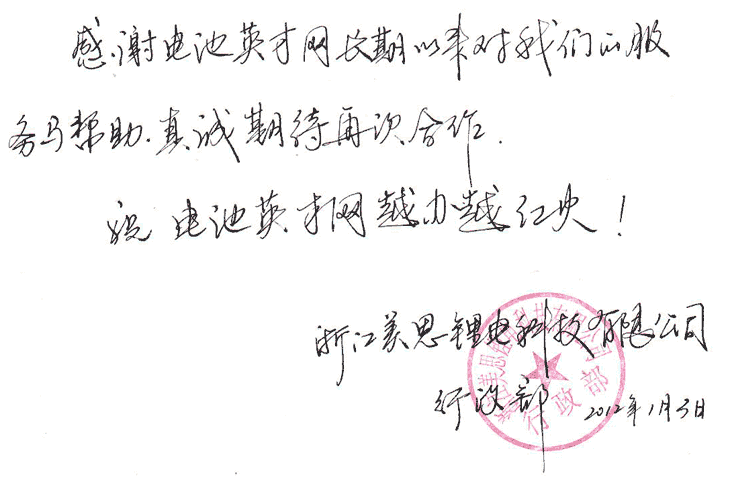 感谢电池英才网长期以来对我们的服
务与帮助.真诚期待再次合作.
祝 电池英才网越办越红火！
浙江美思锂电科技有限公司
行政部 2012年1月5日
行政部